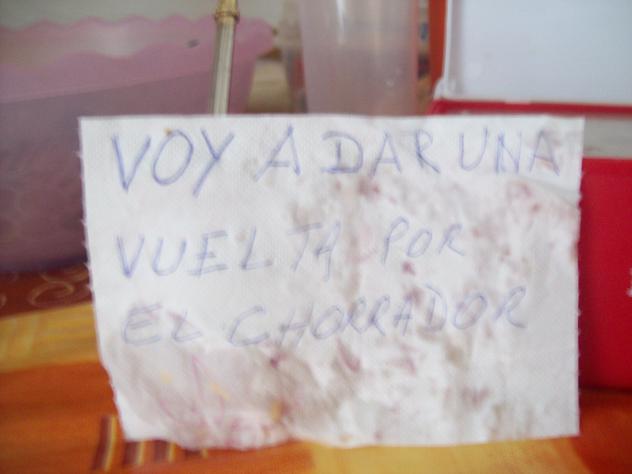 VOY A DAR UNA
VUELTA POR
EL CHORRADOR